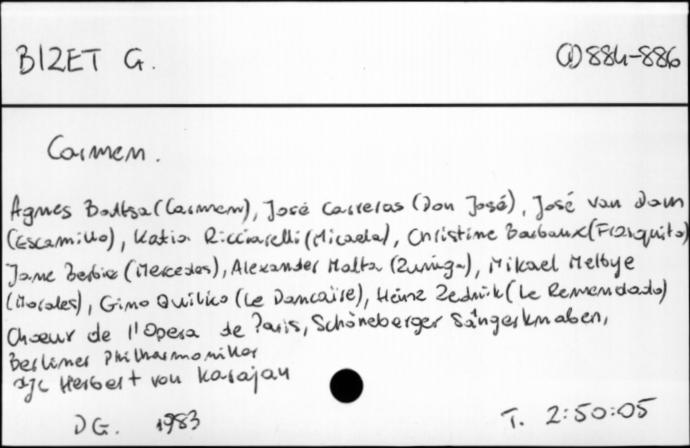 BIZET G.
CD 884-886
Carmen.
Agnes Baltsa (Carmen), José Carreras (Don José), José van Dam
(Escamillo), Katia Ricciarelli (Micaela), Christine Barbaux (Frasquita)
Jane Berbie (Mercedes), Alexander Malta (Zuniga), Mikael Melbye
(Morales), Gino Quilico (Le Dancaïre), Heinz Zednik (Le Remendado)
Chœur de l'Opera de Paris, Schöneberger Sängerknaben,
Berliner Philharmoniker
dyr. Herbert von Karajan
DG. 1983
T. 2:50:05